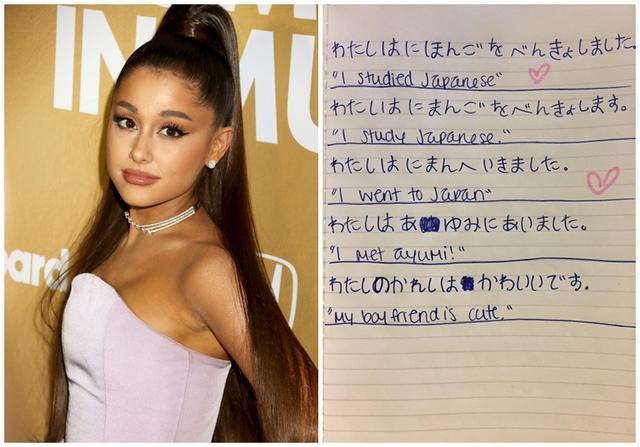 IN MU
oard
わたしはにほんごをべんきょしました。
"I studied Japanese"
わたしはにまんごをべんきょします。
"I study Japanese."
わたしはにまんへいきました。
"I went to Japan"
わたしはあゆみにあいました。
"I met ayumi!"
わたしのかれしはかわいいです。
"My boyfriend is cute."